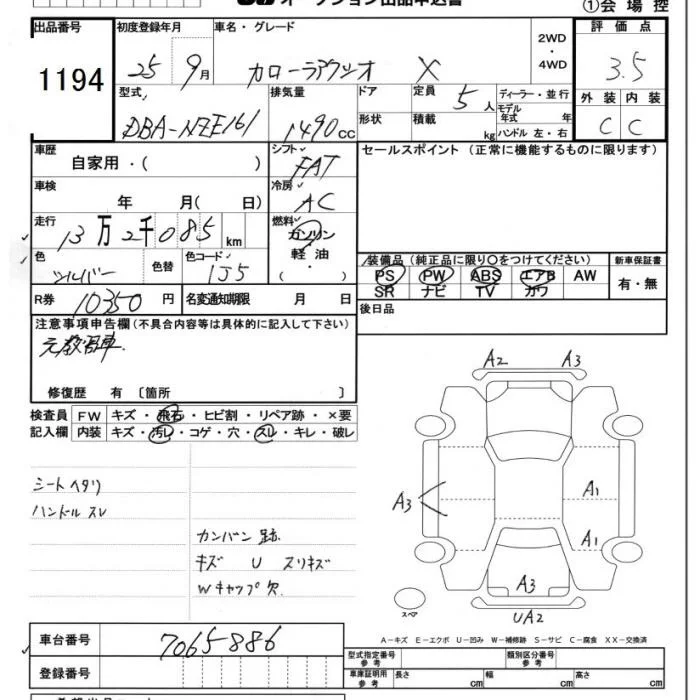 オークション出品申込書
①会場控
出品番号 初度登録年月 車名・グレード 評価点
1194 25 9月 カローラアクシオ X 2WD・4WD 3.5
型式 排気量 ドア 定員 5人 ディーラー・並行 外装 内装
モデル年式 年
DBA-NZE161 1490cc 形状 積載 kg ハンドル 左・右 C C
車歴 シフト セールスポイント (正常に機能するものに限ります)
自家用・( ) FAT
車検 冷房
年 月( 日) AC
走行 燃料
13万2千085km ガソリン
色 色替 色コード 軽油
シルバー 1J5 ( ・ )
装備品 (純正品に限り○をつけてください) 新車保証書
PS PW ABS エアB AW 有・無
SR ナビ TV カワ
R券 10350円 名変通知期限 月 日 後日品
注意事項申告欄 (不具合内容等は具体的に記入して下さい)
元教習車.
修復歴 有 〔箇所 〕
検査員 FW キズ・飛石・ヒビ割・リペア跡・×要
記入欄 内装 キズ・汚レ・コゲ・穴・スレ・キレ・破レ
A2 A3
シートヘタリ
ハンドルスレ
A3 A1
カンバン跡
キズ U スリキズ
Wキャップ欠
A1
A3
スペア
UA2
A-キズ E-エクボ U-凹み W-補修跡 S-サビ C-腐食 XX-交換済
車台番号 7065886
型式指定番号 参考 類別区分番号 参考
登録番号 車庫証明用 参考 長さ cm 幅 cm 高さ cm